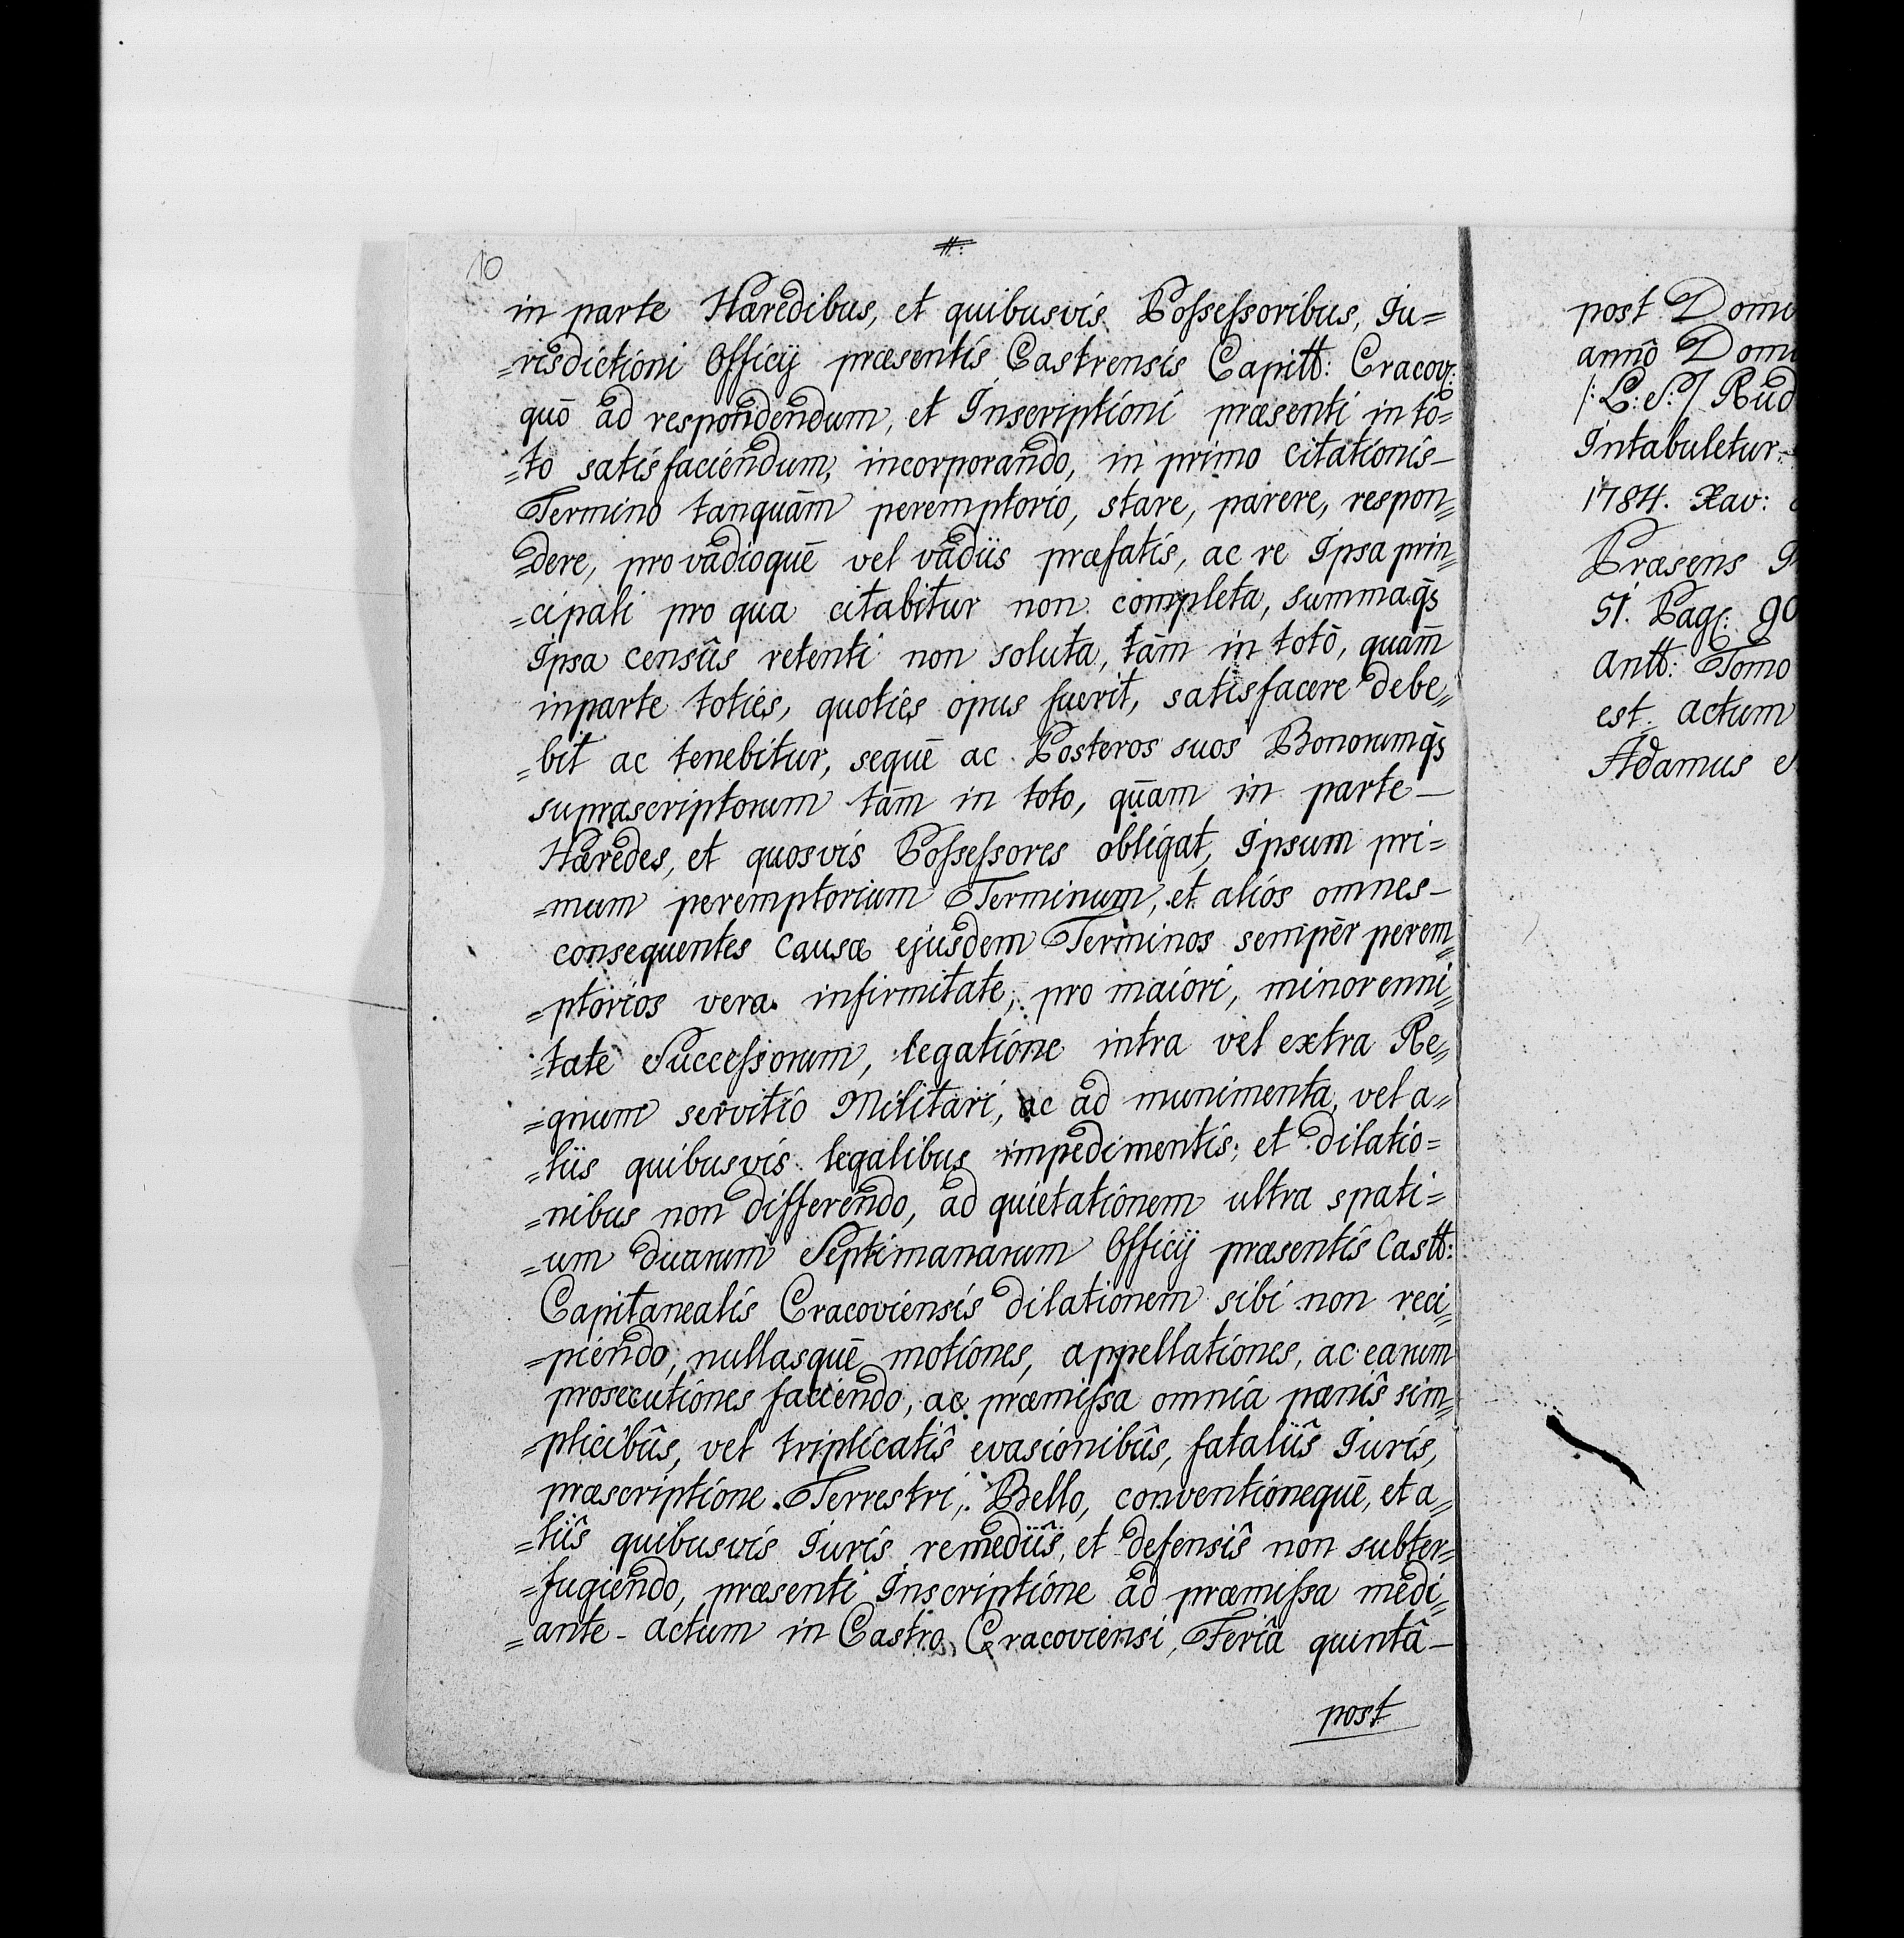 10
#:
in parte Hæredibus, et quibusvis Poſseſsoribus, Iu=
=risdictioni Officÿ præsentis Castrensis Capitt: Cracov:
quō ad respondendum, et Inscriptioni præsenti in to=
=to satisfaciendum, incorporando, in primo citationis–
Termino tanquām peremptorio, stare, parere, respon=
=dere, pro vadioquē vel vadiis præfatis, ac re Ipsa prin=
=cipali pro qua citabitur non completa, summaqs̄
Ipsa censûs retenti non soluta, tām in totō, quām̄
inparte toties, quoties opus fuerit, satisfacere debe=
=bit ac tenebitur, sequē ac Posteros suos Bonorumqs̄
supræscriptorum tām in toto, qūam in parte–
Hæredes, et quosvis Poſseſsores obligat, Ipsum pri=
=mum peremptorium Terminum, et aliós omnes–
consequentes Causæ ejusdem Terminos sempēr perem=
=ptorios vera infirmitate, pro maiori, minorenni=
=tate Succeſsorum, legatióne intra vel extra Re=
=gnum servitio Militari, ac ad munimenta, vel a=
=liis quibusvis legalibus impedimentis, et dilatio=
=nibus non differendo, ad quietatiônem ultra spati=
=um duarum Septimanarum Officÿ præsentis Castt:
Capitanealis Cracoviensis dilationem sibi non reci=
=piendo, nullasquē motiónes, appellatiónes, ac earum
prosecutiónes faciendo, ac præmiſsa omnia pænîs sim=
=plicibûs, vel triplicatîs evasionibûs, fataliîs Iuris,
præscriptióne Terrestri, Bello, conventiónequē, et a=
=liîs quibusvis Iuris remediîs, et defensîs non subter=
=fugiendo, præsenti Inscriptióne ad præmiſsa medi=
=ante – actum in Castro Cracoviensi, Feriâ quintâ–
post
post Domi
annô Domi
/: L: S: / Rud
Intabuletur
1784. Xav:
Præsens
51. Pag: 90
antt: Tomo
est. actum
Adamus